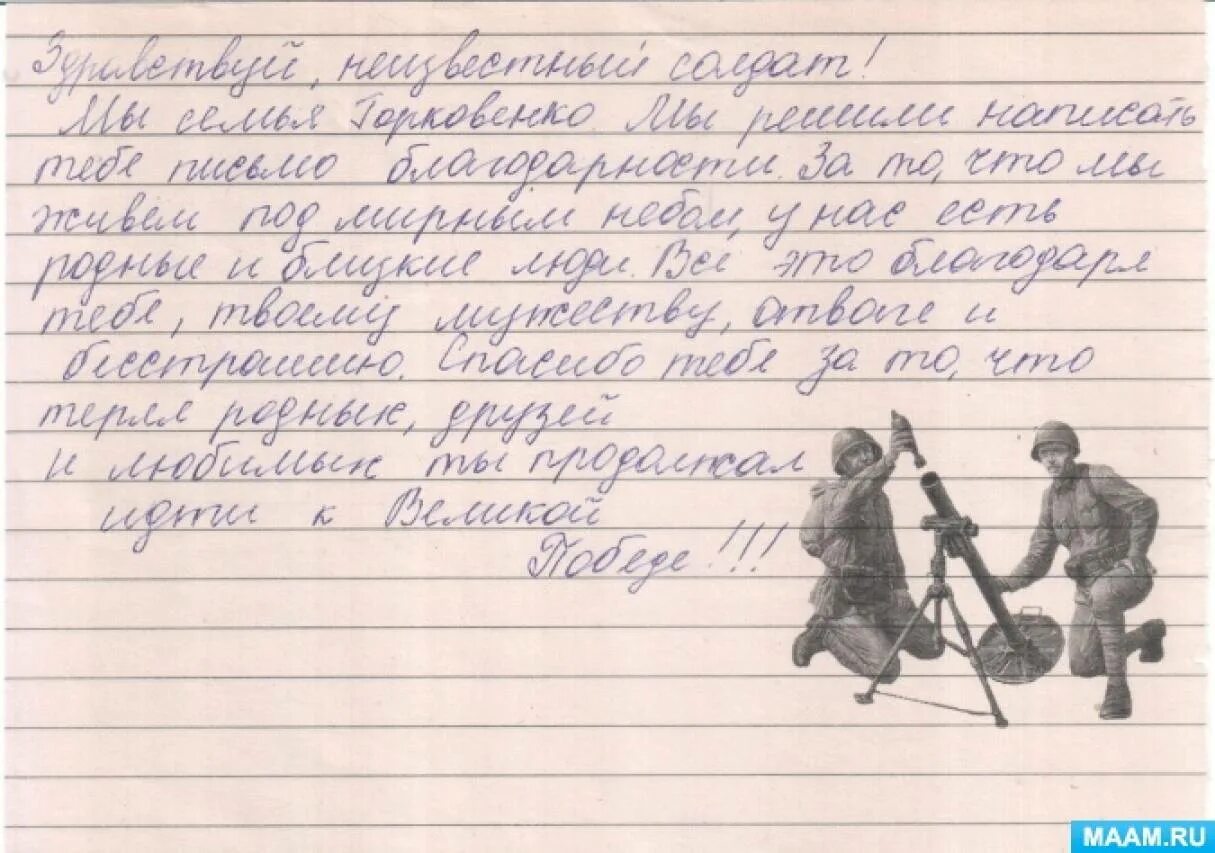 Здравствуй, неизвестный солдат!
Мы семья Горковенко Мы решили написать
тебе письмо благодарности. За то, что мы
живём под мирным небом, у нас есть
родные и близкие люди. Всё это благодаря
тебе, твоему мужеству, отваге и
бесстрашию. Спасибо тебе за то, что
теряя родных, друзей
и любимых ты продолжал
идти к Великой
Победе!!!
MAAM.RU